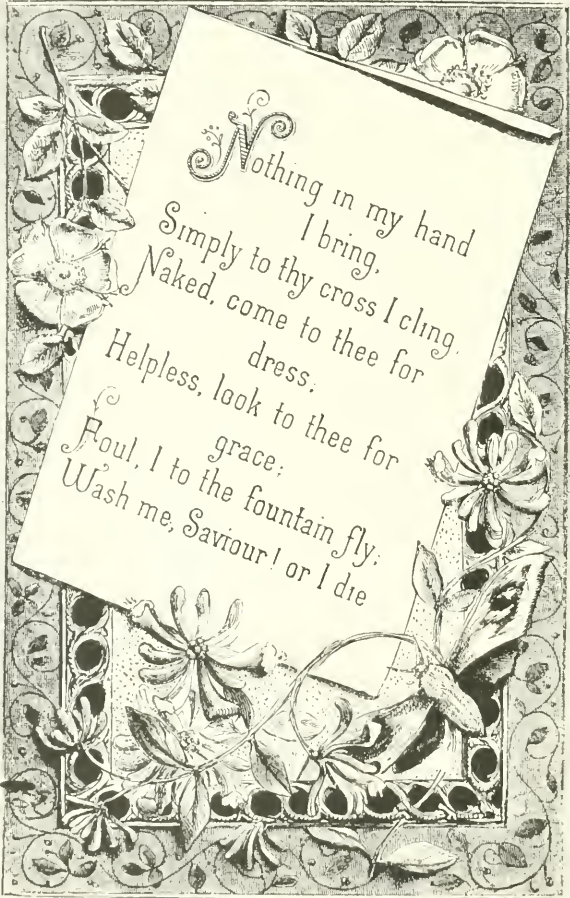 Nothing in my hand
I bring,
Simply to thy cross I cling.
Naked, come to thee for
dress;
Helpless, look to thee for
grace;
Foul, I to the fountain fly;
Wash me, Saviour! or I die